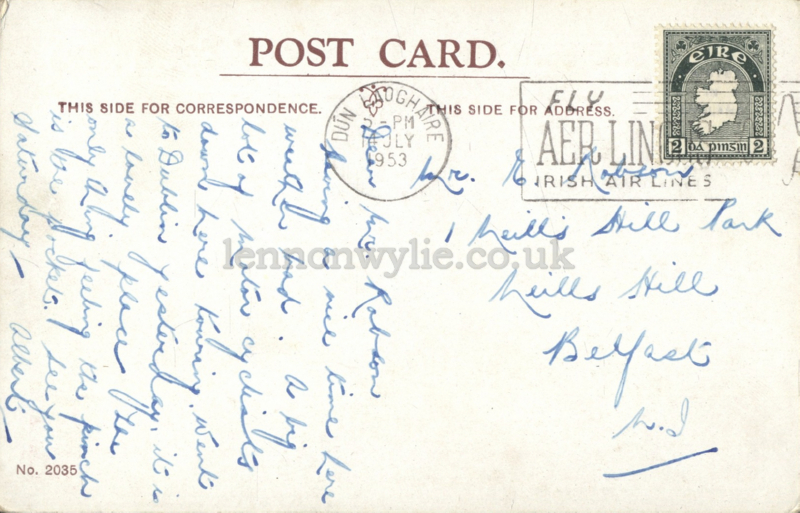 POST CARD.
THIS SIDE FOR CORRESPONDENCE.
THIS SIDE FOR ADDRESS.
DÚN LAOGHAIRE
-PM
JLY
1953
FLY
AER LIN
IRISH AIR LINES
éire
2 dá pingin 2
Dear Mr. Robson
having a nice time here
weather bad. A big
lot of motor cyclists
down here touring. Went
to Dublin yesterday, it is
a lovely place. The
only thing feeling the pinch
is the pocket. See you
Saturday — Albert —
Mr. Robson
1 Neills Hill Park
Neills Hill
Belfast
N.I
lennonwylie.co.uk
No. 2035